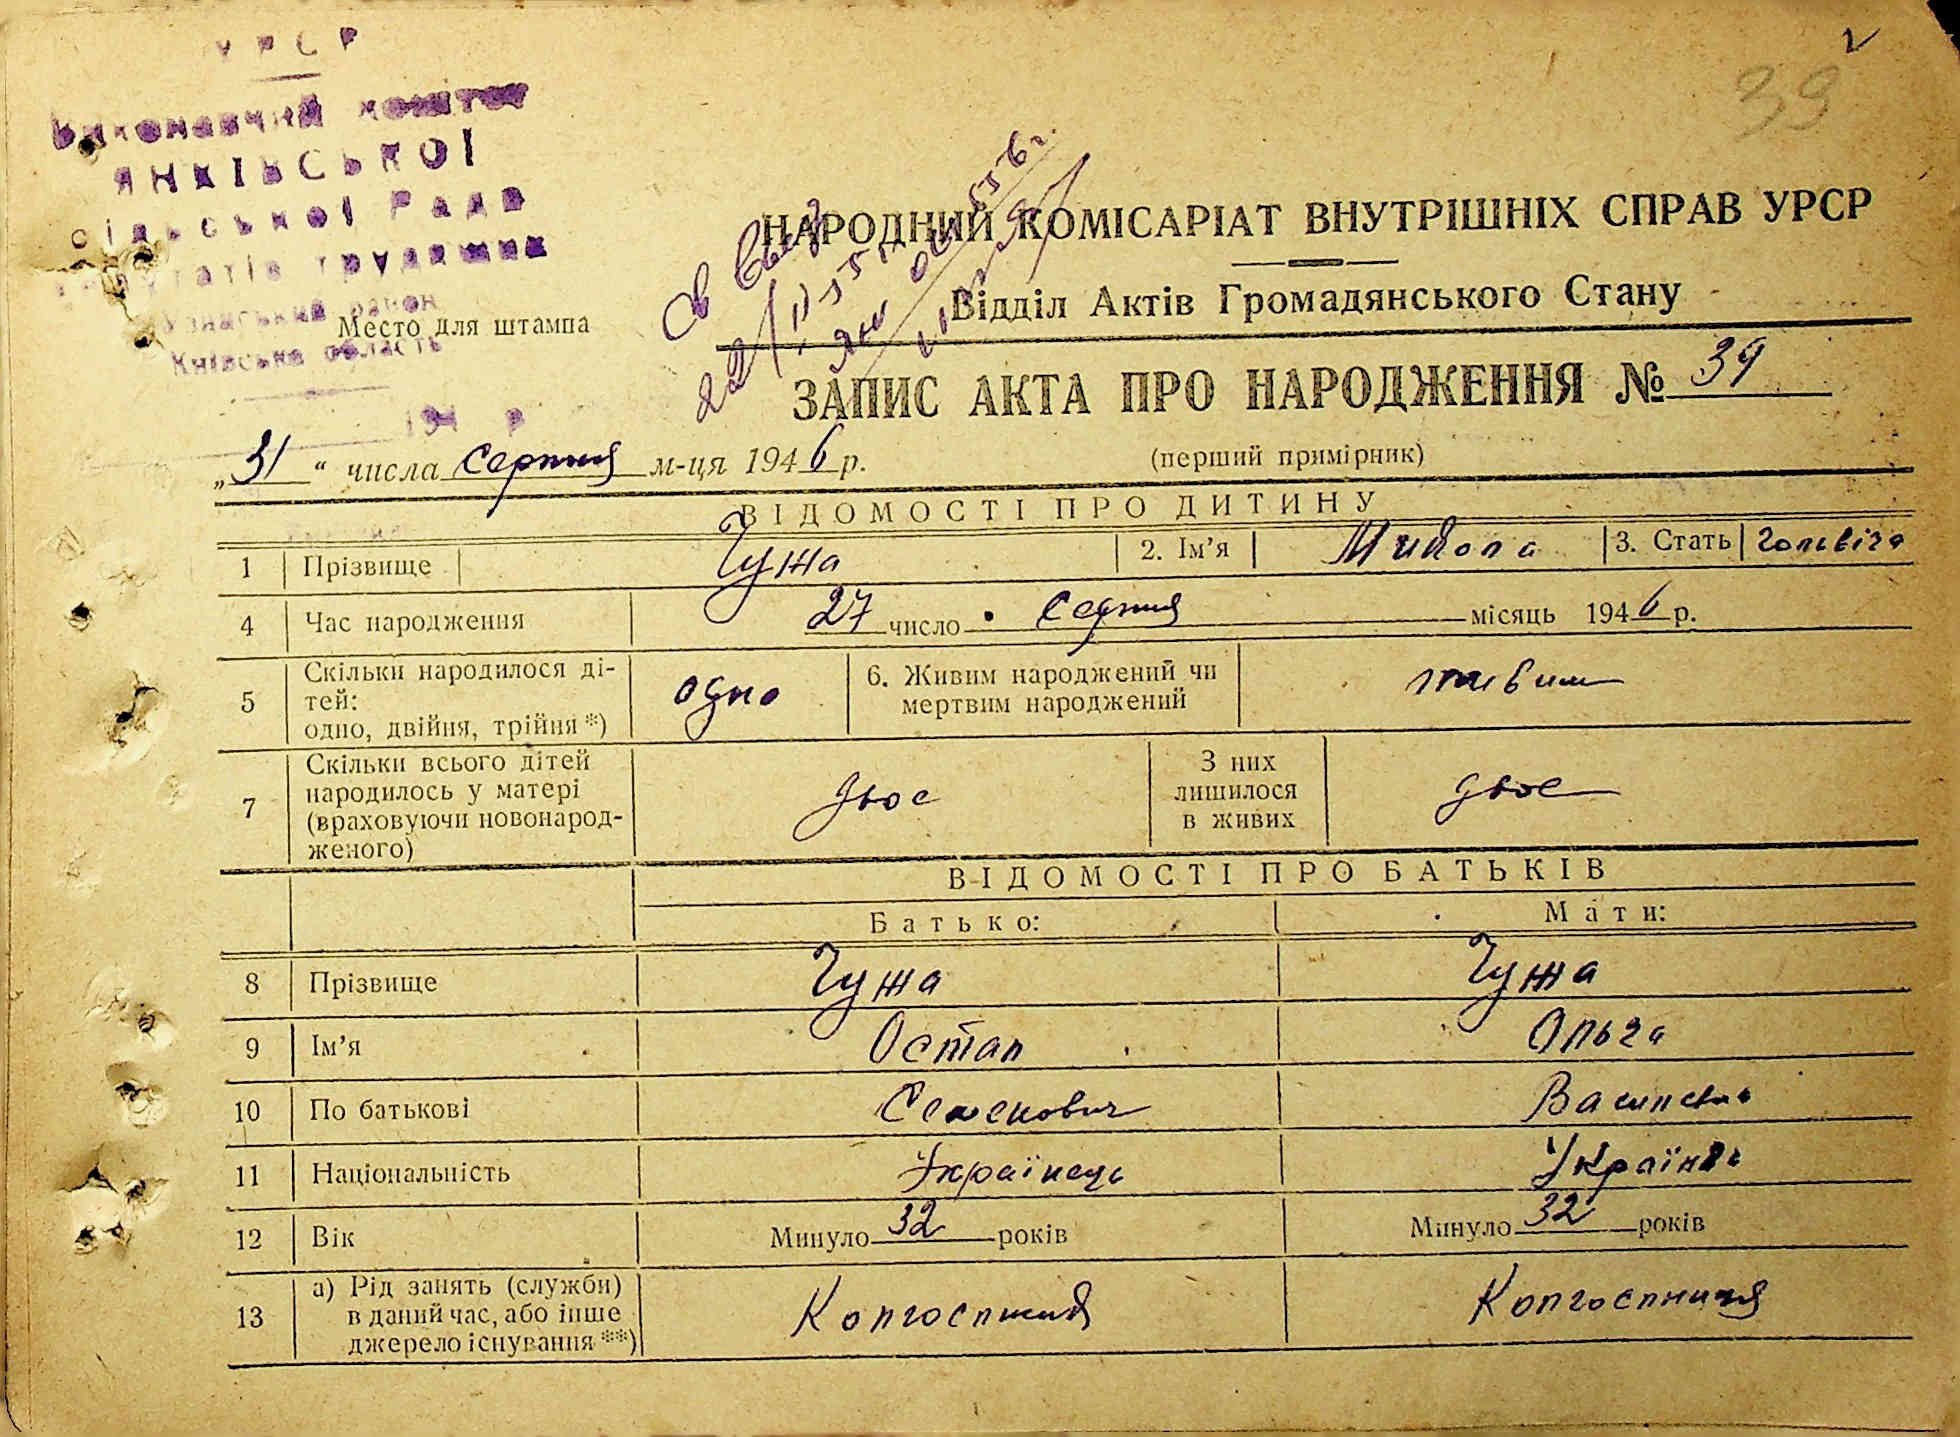 УРСР
Виконавчий комітет
ЯНКІВСЬКОЇ
сільської Ради
депутатів трудящих
район
Київська область
194 р
Место для штампа
39
НАРОДНИЙ КОМІСАРІАТ ВНУТРІШНІХ СПРАВ УРСР
Відділ Актів Громадянського Стану
ЗАПИС АКТА ПРО НАРОДЖЕННЯ № 39
„31“ числа серпня м-ця 1946 р.
(перший примірник)
ВІДОМОСТІ ПРО ДИТИНУ
1 Прізвище Чужа 2. Ім’я Микола 3. Стать
4 Час народження 27 число Серпня місяць 1946 р.
5 Скільки народилося ді-
тей:
одно, двійня, трійня *)
одно
6. Живим народжений чи
мертвим народжений
живим
7 Скільки всього дітей
народилось у матері
(враховуючи новонарод-
женого)
двоє
З них
лишилося
в живих
двоє
ВІДОМОСТІ ПРО БАТЬКІВ
Батько: Мати:
8 Прізвище Чужа Чужа
9 Ім’я Остап Ольга
10 По батькові Семенович
11 Національність Українець
12 Вік Минуло 32 років Минуло 32 років
13 а) Рід занять (служби)
в даний час, або інше
джерело існування **)
Колгоспник Колгоспниця